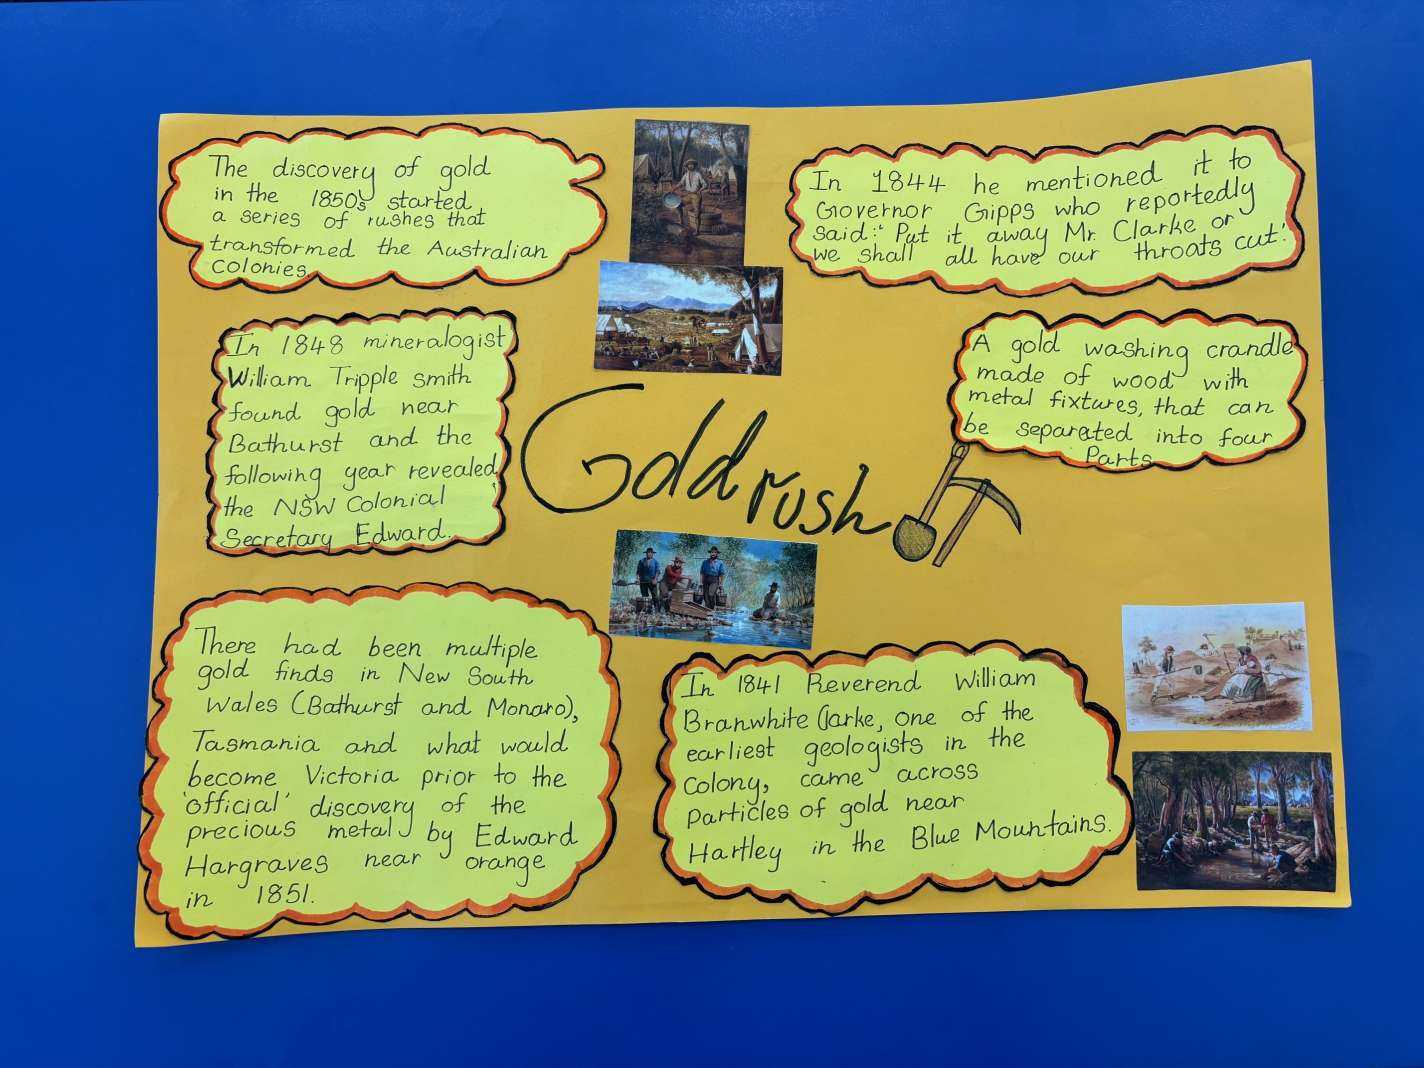 The discovery of gold
in the 1850s started
a series of rushes that
transformed the Australian
Colonies.
In 1844 he mentioned it to
Governor Gipps who reportedly
said:" Put it away Mr. Clarke or
we shall all have our throats cut!
In 1848 mineralogist
William Tripple smith
found gold near
Bathurst and the
following year revealed
the NSW Colonial
Secretary Edward.
A gold washing crandle
made of wood with
metal fixtures, that can
be separated into four
Parts
Gold rush
There had been multiple
gold finds in New South
Wales (Bathurst and Monaro),
Tasmania and what would
become Victoria prior to the
'official' discovery of the
precious metal by Edward
Hargraves near orange
in 1851.
In 1841 Reverend William
Branwhite Clarke, one of the
earliest geologists in the
Colony, came across
Particles of gold near
Hartley in the Blue Mountains.